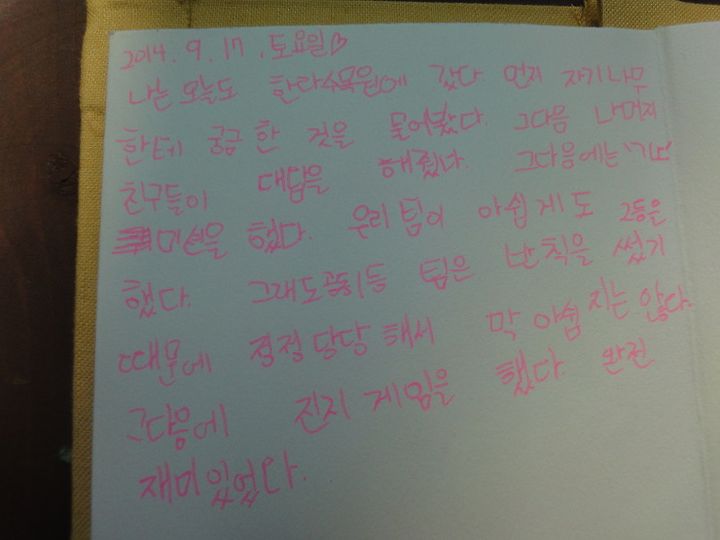 2014. 9. 17. 토요일♡
나는 오늘도 한라수목원에 갔다 먼저 자기나무
한테 궁금한 것을 물어봤다. 그다음 나머지
친구들이 대답을 해줬다. 그다음에는
미션을 했다. 우리팀이 아쉽게도 2등을
했다. 그래도 팀은 반칙을 썼기
때문에 정정당당해서 막 아쉽지는 않다.
그다음에 진지 게임을 했다 완전
재미있었다.